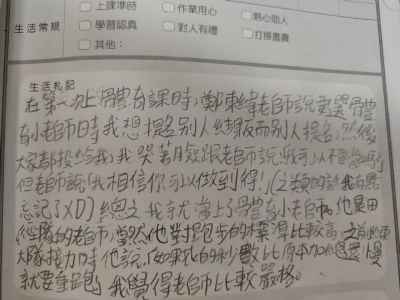 上課準時 作業用心 熱心助人
生活常規 學習認真 對人有禮 打掃盡責
其他:
生活札記
在第一次上體育課時,鄭東緯老師說要選體育
小老師時我想提名別人 結果反而別人提名我,最後
大家都投給我,我哭著臉跟老師說我可以不當嗎?
但老師說「我相信你可以做到得!」(之類的話我有點
忘記了XD)總之我就當上了體育小老師。他是田
徑隊的老師,當然他對跑步的標準比較高,之前跑
大隊接力時他說,如果我的秒數比原本加 還慢
就要重跑,我覺得老師比較嚴格。